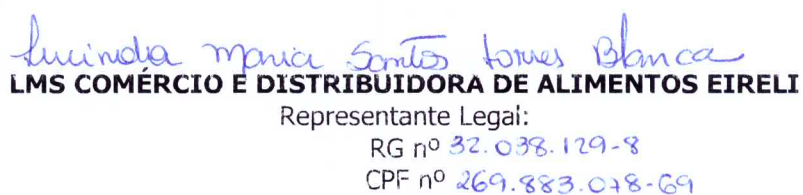 Lucinda Maria Santos Torres Blanca
LMS COMÉRCIO E DISTRIBUIDORA DE ALIMENTOS EIRELI
Representante Legal:
RG nº 32.038.129-8
CPF nº 269.883.078-69